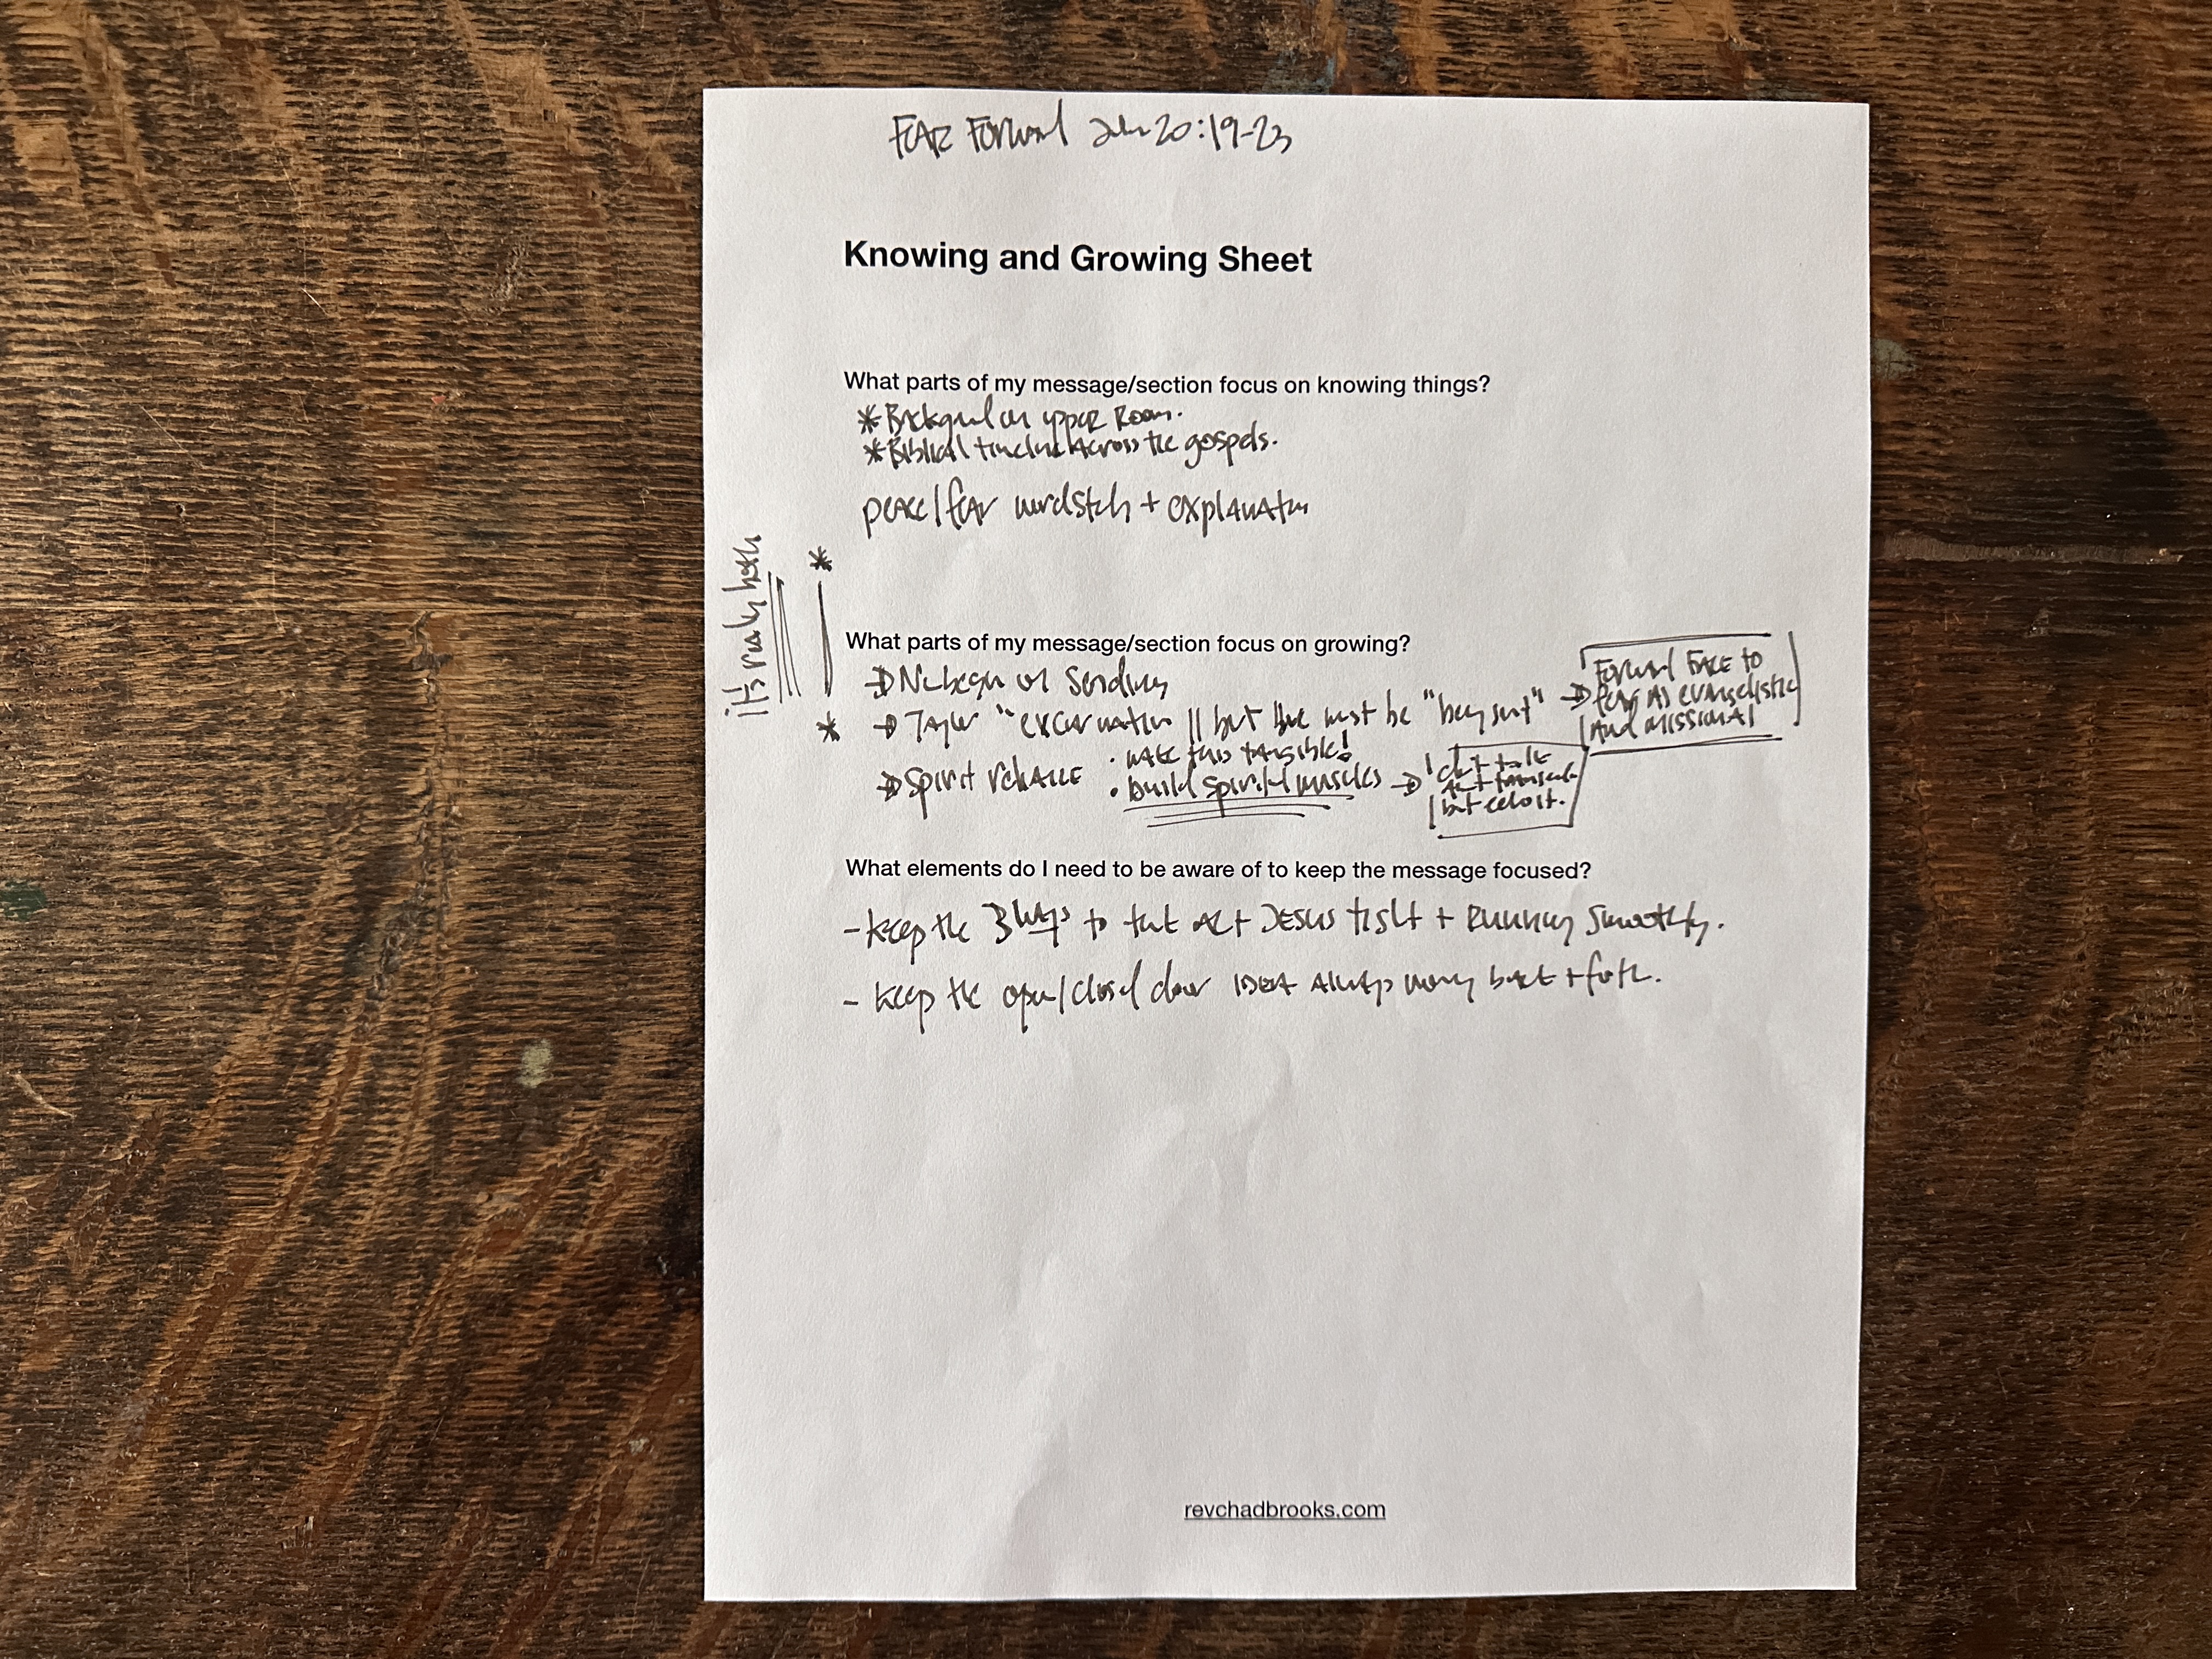 FEAR Forward John 20:19-23
Knowing and Growing Sheet
What parts of my message/section focus on knowing things?
* Background on upper Room.
* Biblical timeline Across the gospels.
peace/fear word study + explanation
it's really both
*
What parts of my message/section focus on growing?
→ on Sending
* → Taylor "excarnation || but there must be "being sent" →
Forward FACE to
fear AS evangelistic
And missional
→ Spirit reliance
· make this tangible!
· build spiritual muscles →
don't talk
but
What elements do I need to be aware of to keep the message focused?
- keep the 3 ways to that Act Jesus tight + Running smoothly.
- keep the open/closed door IDEA Always moving back + forth.
revchadbrooks.com